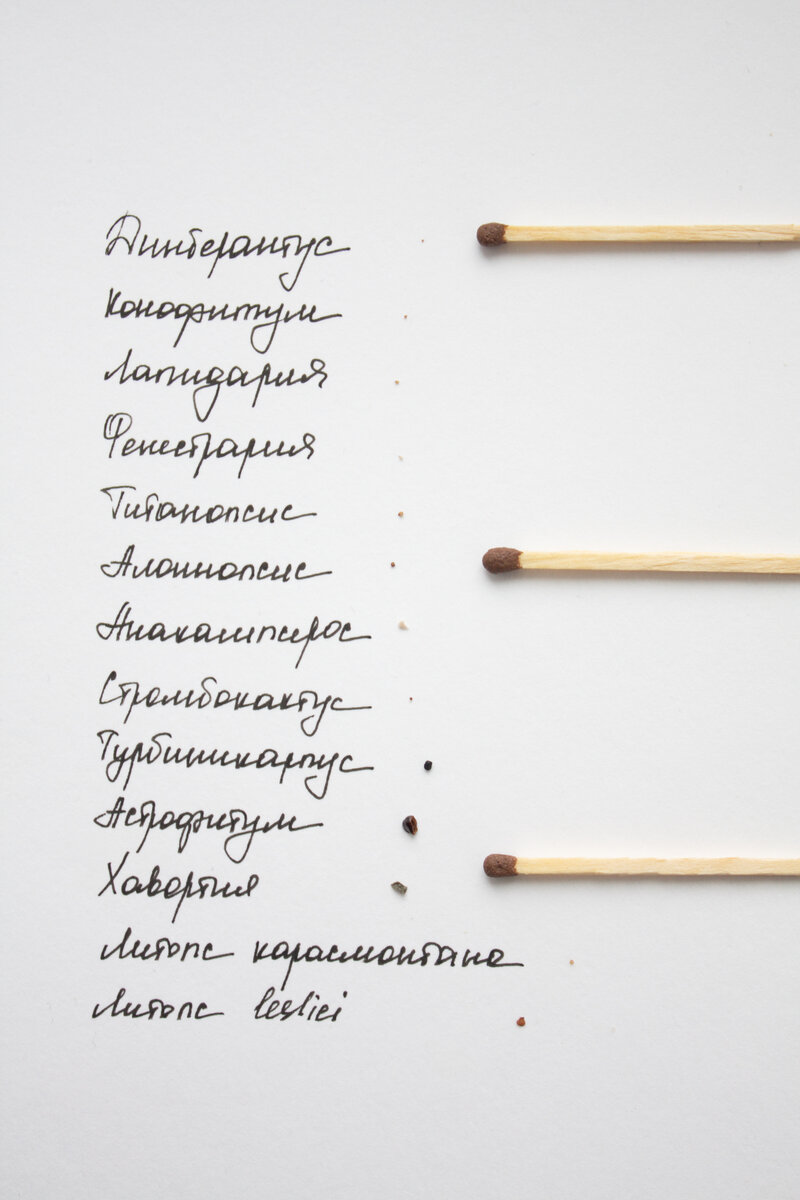 Динтерантус
Конофитум
Лапидария
Фенестрария
Титанопсис
Алоинопсис
Анакампсерос
Стромбокактус
Турбиникарпус
Астрофитум
Хавортия
Литопс карасмонтана
Литопс lesliei